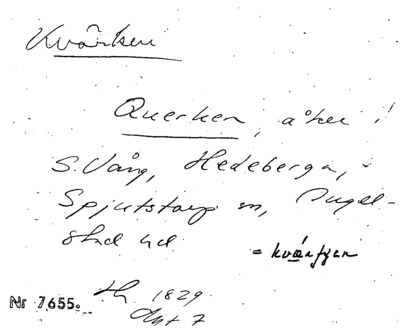 Kvärken
Querken, åker i
S. Vång, Hedeberga,
Spjutstorp sn, Ingel-
stad hd
= kvärfjen
Nr 7655.
1829
Akt 7